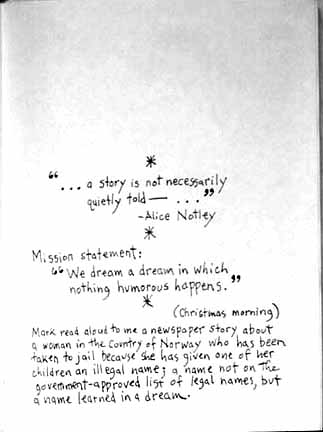 *
"... a story is not necessarily
quietly told— ..."
-Alice Notley
*
Mission statement:
"We dream a dream in which
nothing humorous happens."
*
(Christmas morning)
Mark read aloud to me a newspaper story about
a woman in the Country of Norway who has been
taken to jail because she has given one of her
children an illegal name; a name not on the
government-approved list of legal names, but
a name learned in a dream.